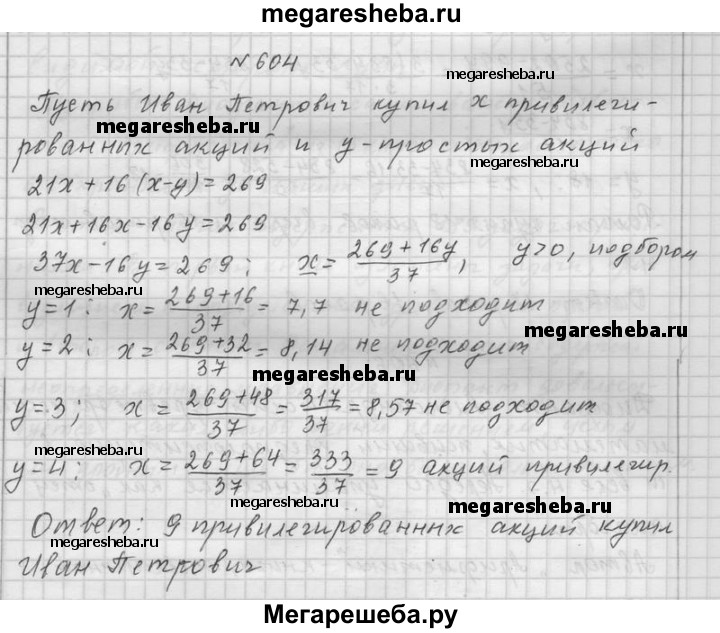 megaresheba.ru
№604
megaresheba.ru
Пусть Иван Петрович купил x привилеги-
megaresheba.ru
рованных акций и y-простых акций
megaresheba.ru
21x + 16 (x-y) = 269
21x + 16x - 16y = 269
37x - 16y = 269 ; x = (269 + 16y)/37 , y>0, подбором
megaresheba.ru
y = 1 : x = (269+16)/37 = 7,7 не подходит
megaresheba.ru
y = 2 : x = (269+32)/37 = 8,14 не подходит
megaresheba.ru
y = 3 ; x = (269+48)/37 = 317/37 = 8,57 не подходит
megaresheba.ru
y = 4 : x = (269+64)/37 = 333/37 = 9 акций привилегир.
megaresheba.ru
megaresheba.ru
Ответ: 9 привилегированных акций купил
megaresheba.ru
Иван Петрович
Мегарешеба.ру